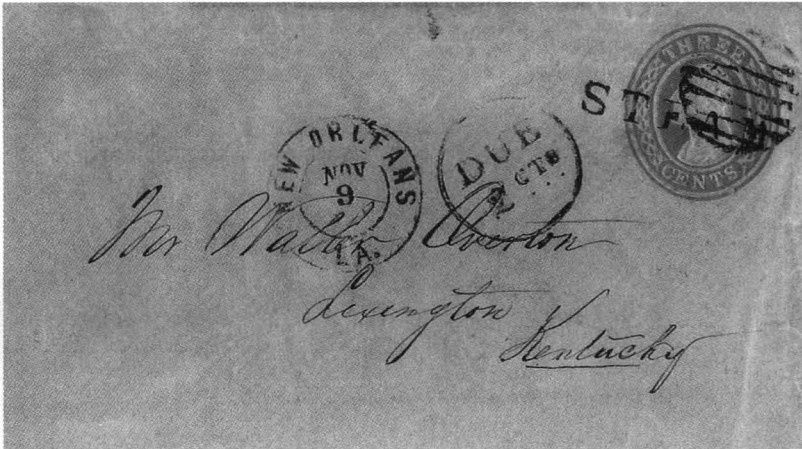 THREE
CENTS
STEAM
NEW ORLEANS
NOV
9
LA.
DUE
2 CTS
Mr Walter Overton
Lexington
Kentucky